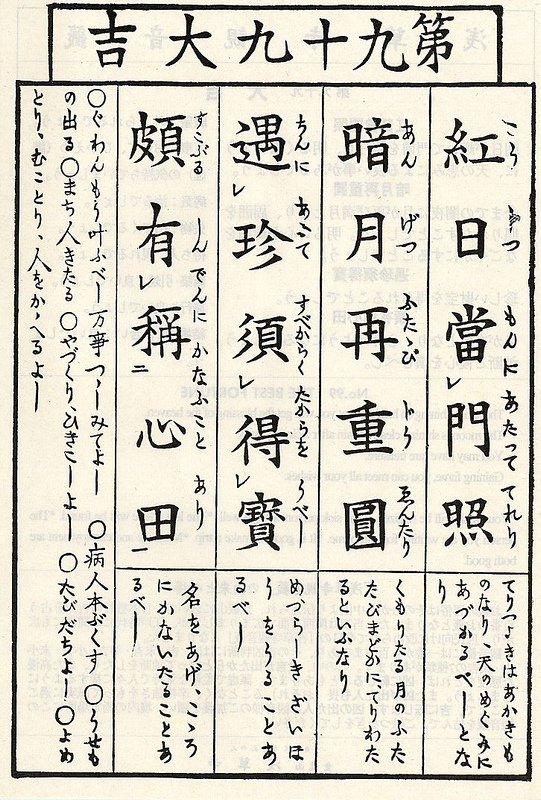 第九十九大吉
紅日當門照
こう じつ もんに あたつて てれり
てりつよきはあかきも
のなり 天のめぐみに
あづかるべしとな
り
暗月再重圓
あん げつ ふたゝび
くもりたる月のふた
たびまどかにてりわた
るといふなり
遇珍須得寶
ちんに あふて すべからく たからを うべし
めづらしきざいほ
うをうるとあ
るべし
頗有稱心田
すこぶる しんでんに かなふこと あり
名をあげこゝろ
にかないたることあ
るべし
〇わんもう叶ふべし 万事つゝしみてよし 〇病人本ぶくす 〇うせも
の出る 〇まち人きたる 〇やづくり、ひきこしよし 〇たびだちよし 〇よめ
とり、むことり、人をかゝへるよし